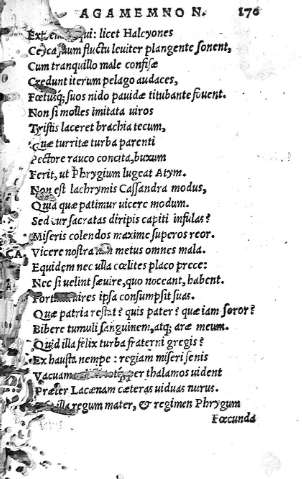 AGAMEMNON. 176
licet Halcyones
Ceyca suum fluctu leuiter plangente sonent,
Cum tranquillo male confisæ
Credunt iterum pelago audaces,
Fœtusq; suos nido pauidæ titubante fouent.
Non si molles imitata uiros
Tristis laceret brachia tecum,
Quæ turritæ turba parenti
Pectore rauco concita, buxum
Ferit, ut Phrygium lugeat Atym.
Non est lachrymis Cassandra modus,
Quia quæ patimur uicere modum.
Sed cur sacratas diripis capiti infulas?
Miseris colendos maxime superos reor.
CA. Vicere nostra iam metus omnes mala.
Equidem nec ulla cœlites placo prece:
Nec si uelint sæuire, quo noceant, habent.
Fortuna uires ipsa consumpsit suas.
Quæ patria restat? quis pater? quæ iam soror?
Bibere tumuli sanguinem, atq; aræ meum.
Quid illa felix turba fraterni gregis?
Exhausta nempe: regiam miseri senis
Vacuam per thalamos uident
Præter Lacænam cæteras uiduas nurus.
illa regum mater, & regimen Phrygum
Fœcunda